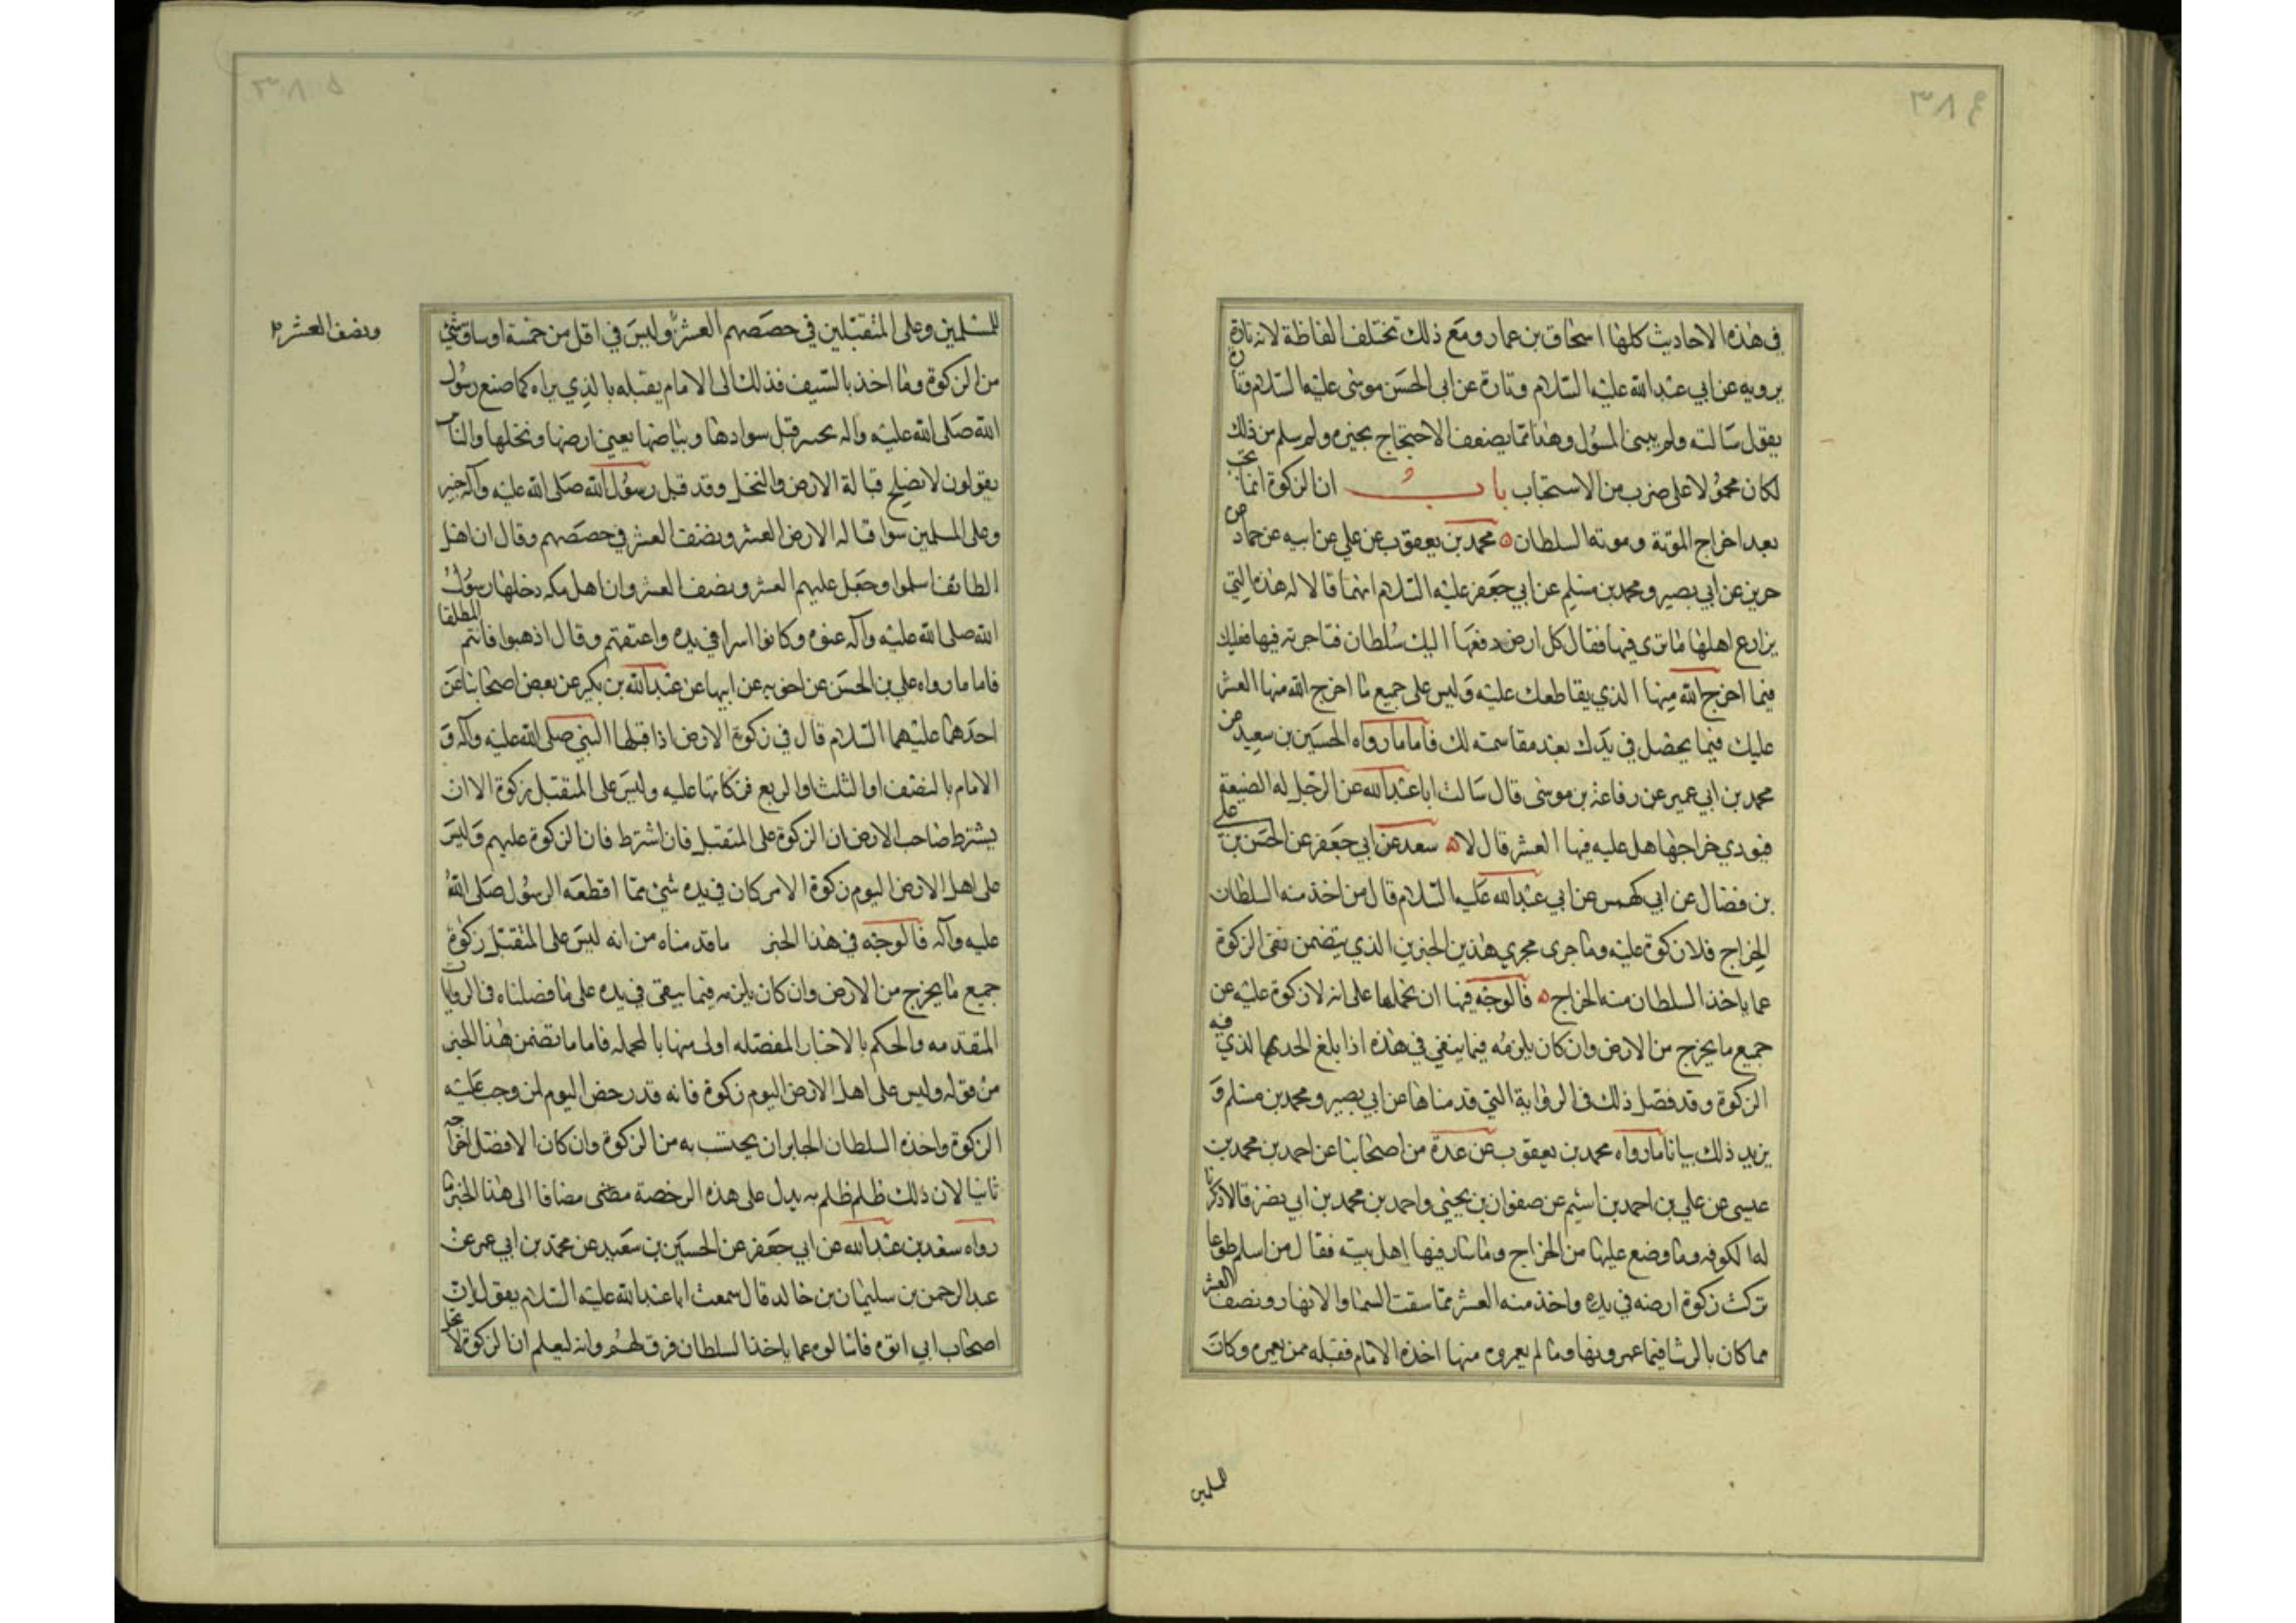 في هذه الاحاديث كلها اسحاق بن عمار ومع ذلك تختلف الفاظة لانه تارة
يرويه عن ابي عبد الله عليه السلام وتارة عن ابي الحسن موسى عليه السلام وتارة
يقول سالته ولم يبين المسؤل وهذا مما يضعف الاحتجاج بخبره ولو سلم من ذلك
لكان محمولا على ضرب من الاستحباب باب ان الزكوة انما تجب
بعد اخراج المؤنة ومونة السلطان محمد بن يعقوب عن علي عن ابيه عن حماد عن
حريز عن ابي بصير ومحمد بن مسلم عن ابي جعفر عليه السلام انهما قالا له هذه التي
يزارع اهلها ما ترى فيها فقال كل ارض دفعها اليك سلطان فتاجرته فيها فعليك
فيما اخرج الله منها الذي يقاطعك عليه وليس على جميع ما اخرج الله منها العشر
عليك فيما يحصل في يدك بعد مقاسمته لك فاما ما رواه الحسين بن سعيد عن
محمد بن ابي عمير عن رفاعة بن موسى قال سالت ابا عبد الله عن الرجل له الضيعة
فيودي خراجها هل عليه فيها العشر قال لا سعد عن ابي جعفر عن الحسن بن علي
بن فضال عن ابي كهمس عن ابي عبد الله عليه السلام قال من اخذ منه السلطان
الخراج فلا زكوة عليه وما جرى مجرى هذين الخبرين الذي يتضمن نفى الزكوة
عما ياخذ السلطان منه الخراج فالوجه فيها ان نحملها على انه لا زكوة عليه عن
جميع ما يخرج من الارض وان كان يلزمه فيما يبقى في هذه اذا بلغ الحد الذي فيه
الزكوة وقد فصل ذلك في الرواية التي قدمناها عن ابي بصير ومحمد بن مسلم و
يزيد ذلك بيانا ما رواه محمد بن يعقوب عن عدة من اصحابنا عن احمد بن محمد بن
عيسى عن علي بن احمد بن اشيم عن صفوان بن يحيى واحمد بن محمد بن ابي نصر قالا ذكرنا
له الكوفه وما وضع عليها من الخراج وما سار فيها اهل بيته فقال من اسلم طوعا
تركت زكوة ارضه في يده واخذ منه العشر مما سقت السما والانهار ونصف العشر
مما كان بالرشا فيما عمروه منها وما لم يعمروه منها اخذه الامام فقبله ممن يعمره وكان
للمسلمين
ونصف العشر
للمسلمين وعلى المتقبلين في حصصهم العشر وليس في اقل من خمسة اوساق شي
من الزكوة وما اخذ بالسيف فذلك الى الامام يقبله بالذي يراه كما صنع رسول
الله صلى الله عليه واله بخيبر قبل سوادها وبياضها يعني ارضها ونخلها والناس
يقولون لا يصلح قبالة الارض والنخل وقد قبل رسول الله صلى الله عليه واله خيبر
وعلى المسلمين سوا قباله الارض العشر ونصف العشر في حصصهم وقال ان اهل
الطائف اسلموا وجعل عليهم العشر ونصف العشر وان اهل مكه دخلها رسول
الله صلى الله عليه واله عنوه وكانوا اسرا في يده واعتقهم وقال اذهبوا فانتم الطلقا
فاما ما رواه علي بن الحسن عن اخويه عن ابيها عن عبد الله بن بكير عن بعض اصحابنا عن
احدهما عليهما السلام قال في زكوة الارض اذا قبلها النبي صلى الله عليه واله و
الامام بالنصف او الثلث او الربع فزكاتها عليه وليس على المتقبل زكوة الا ان
يشترط صاحب الارض ان الزكوة على المتقبل فان اشترط فان الزكوة عليهم وليس
على اهل الارض اليوم زكوة الا من كان في يده شي مما اقطعه الرسول صلى الله
عليه واله فالوجه في هذا الخبر ما قدمناه من انه ليس على المتقبل زكوة
جميع ما يخرج من الارض وان كان يلزمه فيما يبقى في يده على ما فصلناه في الروايات
المتقدمه والحكم بالاخبار المفصله اولى منها بالمجمله فاما ما تضمن هذا الخبر
من قوله وليس على اهل الارض اليوم زكوة فانه قد رخص اليوم لمن وجب عليه
الزكوة واخذه السلطان الجابر ان يحتسب به من الزكوة وان كان الافضل اخراجه
ثانيا لان ذلك ظلم ظلم به يدل على هذه الرخصة مضافا الى هذا الخبر ما
رواه سعد بن عبد الله عن ابي جعفر عن الحسين بن سعيد عن محمد بن ابي عمر عن
عبد الرحمن بن سليمان بن خالد قال سمعت ابا عبد الله عليه السلام يقول ان
اصحاب ابي اتوه فسالوه عما ياخذ السلطان فرق لهم وانه ليعلم ان الزكوة لا تحل